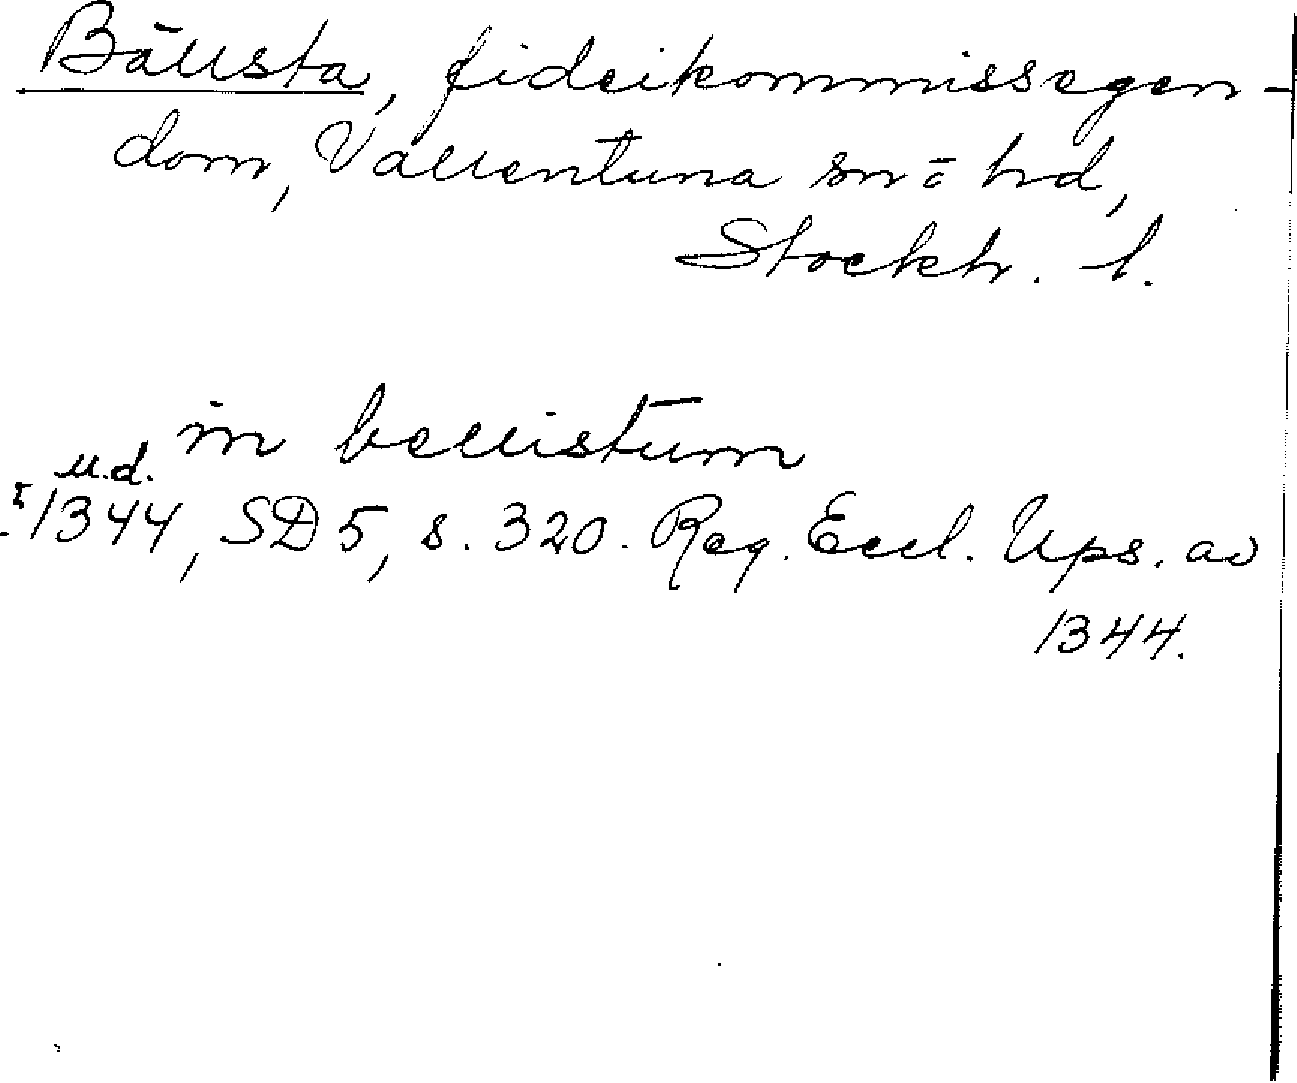 Bällsta, fideikommissegen-
dom, Vallentuna sn o hd,
Stockh. l.
in bellistum
u.d.
1344, SD 5, s. 320. Reg. Eccl. Ups. av
1344.